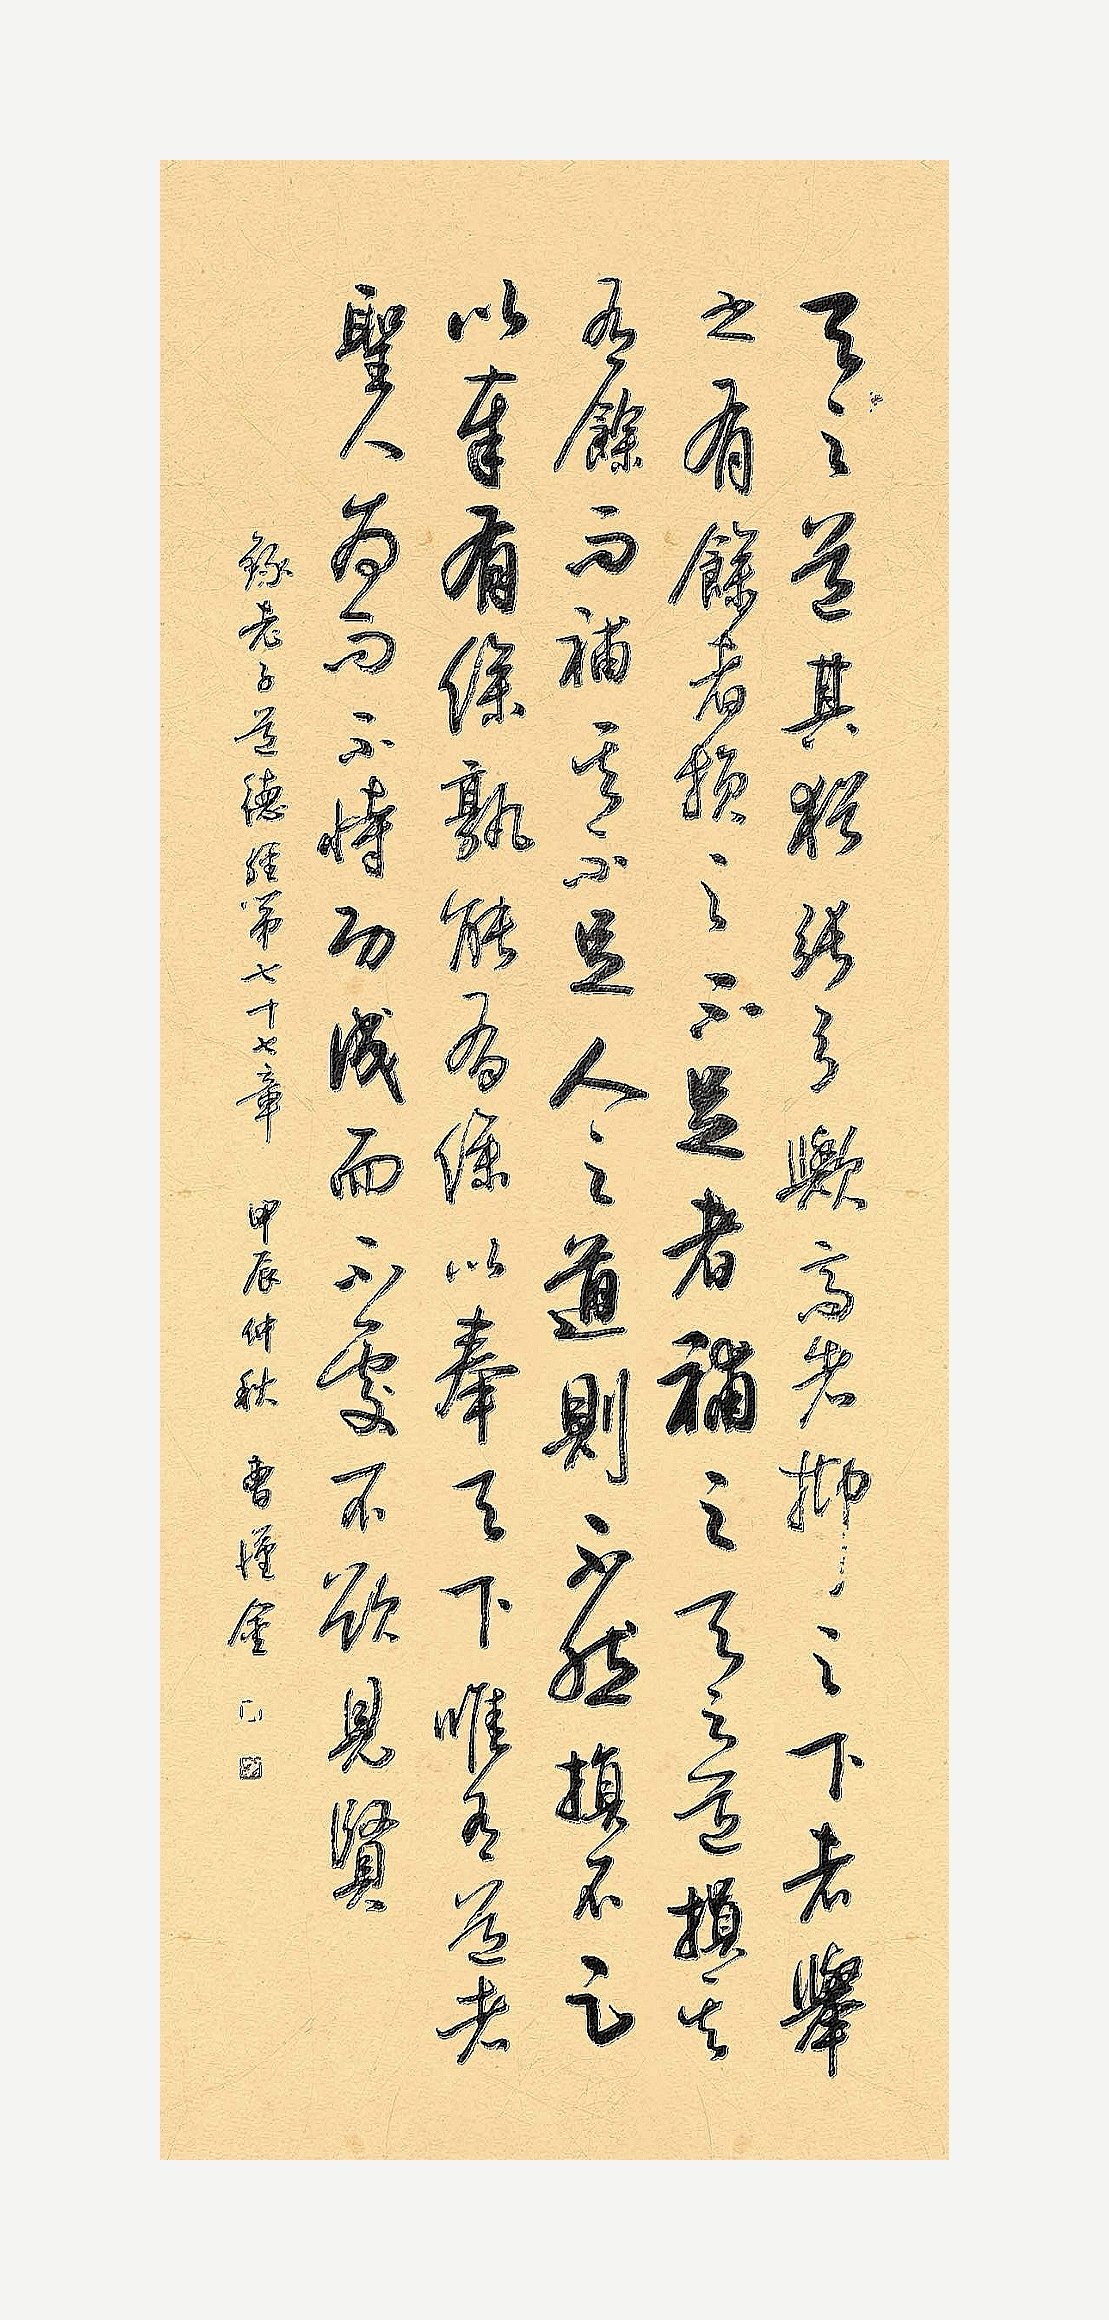 天之道其猶張弓歟高者抑之下者舉
之有餘者損之不足者補之天之道損其
有餘而補其不足人之道則不然損不足
以奉有餘孰能有餘以奉天下唯有道者
聖人為而不恃功成而不處不欲見賢
錄老子道德經第七十七章 甲辰仲秋 曹金